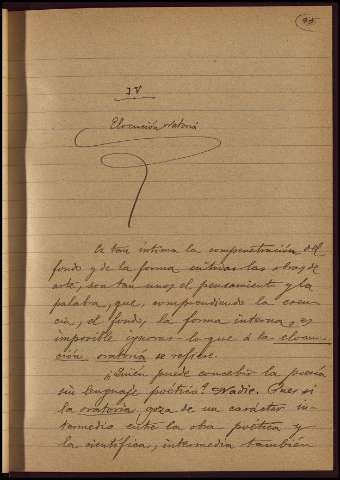 IV
Elocución oratoria
Es tan íntima la compenetración del
fondo y de la forma en las obras de
arte, son tan unos el pensamiento y la
palabra, que, comprendiendo la esen-
cia, el fondo, la forma interna, es
imposible ignorar lo que á la elocu-
ción oratoria se refiere.
¿Quién puede concebir la poesía
sin lenguaje poético? Nadie. Pues si
la oratoria, goza de un carácter in-
termedio entre la obra poética y
la científica, intermedia también